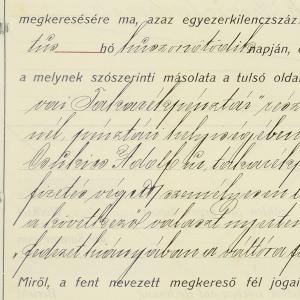 megkeresésére ma, azaz egyezerkilenczszáz
tus hó huszonötödik napján, d
a melynek szószerinti másolata a tulsó olda
vai Takarékpénztár" rész
nél pénztári helyiségében
Adolf úr, takarékp
fizetés végett személyesen
a következő választ nyertem
"fedezet hiányában a váltóra f
Miről, a fent nevezett megkereső fél jogai